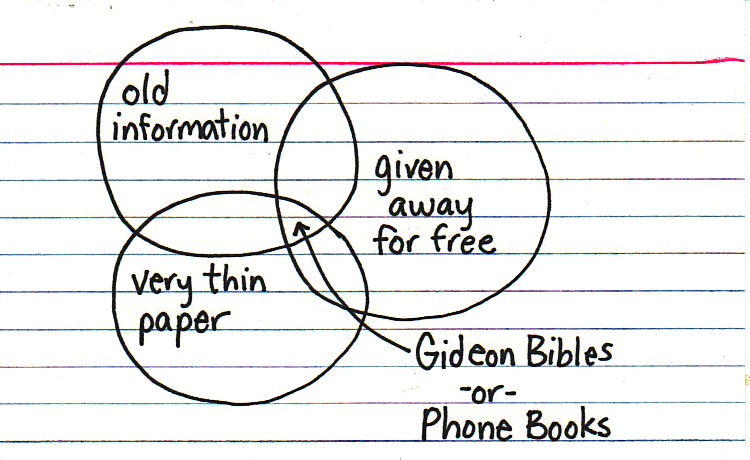 old
information
given
away
for free
very thin
paper
Gideon Bibles
-or-
Phone Books